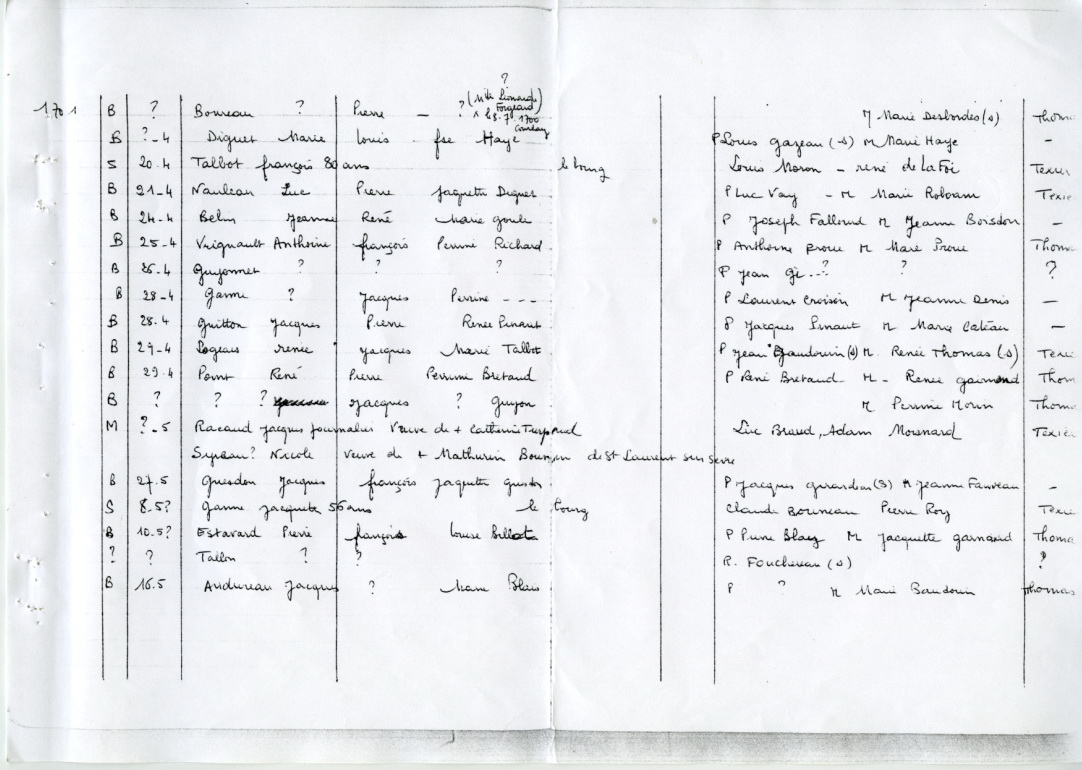 ?
(
1701 B ? Bonneau ? Pierre — ? 1700 M Marie Desbordes (s) Thom
B ?-4 Diguet Marie Louis - fse Haye P Louis gazeau (s) M Marie Haye —
S 20.4 Talbot françois 80 ans le bourg Louis Moron - rené de la Foi Texier
B 21-4 Nauleau Luc Pierre Jaquette Diguet P Luc Vay - M Marie Roboam Texie
B 24-4 Belin Jeanne René Marie P Joseph Falloud M Jeanne Boisdon —
B 25-4 Vrignault Anthoine françois Perrine Richard P Anthoine proue M Marie Proue Thom
B 26.4 Guyonnet ? ? ? P Jean Ge...? ? ?
B 28-4 Ganne ? Jacques Perrine --- P Laurent Croison M Jeanne Denis —
B 28.4 Guitton Jacques Pierre Renee Pinaut P Jacques Pinaut M Marie Cateau —
B 29-4 Logeais renée Jacques Marie Talbot P Jean Baudouin (s) M. Renée Thomas (s) Texie
B 29.4 Point René Pierre Perrine Bretaud P René Bretaud M - Renee Thom
B ? ? ? Jacques ? Guyon M Perrine Morin Thoma
M ?-5 Racaud Jacques journalier Veuve de + Catherine Luc Braud, Adam Mosnard Texier
? Nicole veuve de + Mathurin de St Laurent sur sevre
B 27.5 Guesdon Jacques françois Jaquette P Jacques girardin (s) M Jeanne Fauveau —
S 8.5? Ganne Jacquette 56 ans le bourg Claude Bonneau Pierre Roy Texie
B 10.5? Estavard Pierre françois Louise P Pierre Blay M Jacquette Thoma
? ? Tallon ? ? R. Fouchereau (s) ?
B 16.5 Andureau Jacques ? Marie Blais P ? M Marie Baudouin Thomas